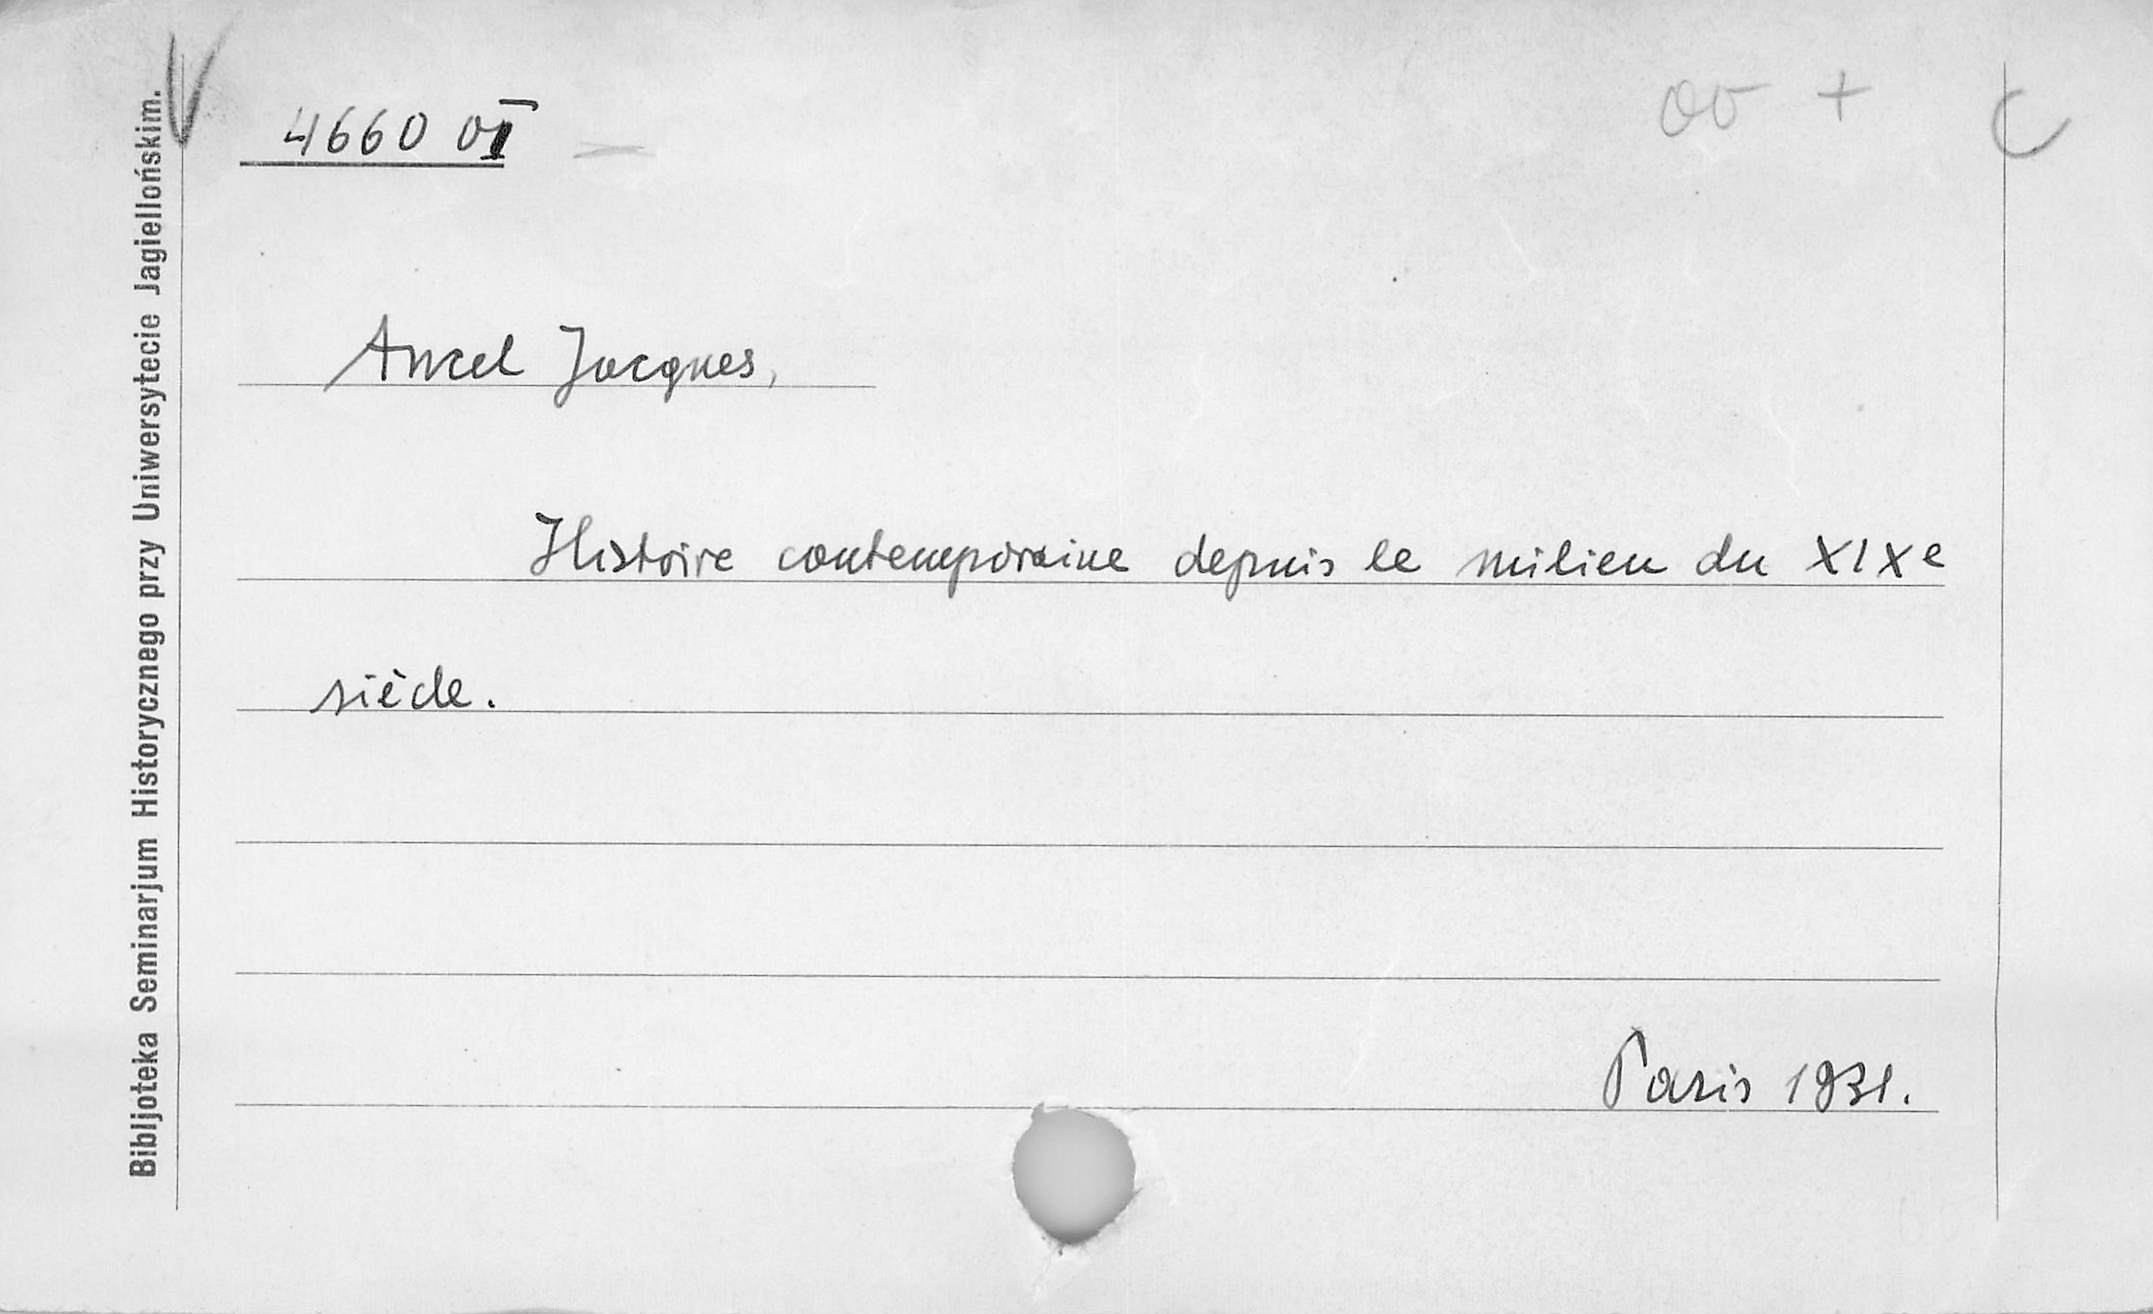 4660 OI
Ancel Jacques,
Histoire contemporaine depuis le milieu du XIXe
siècle.
Paris 1931.
Bibljoteka Seminarjum Historycznego przy Uniwersytecie Jagiellońskim.